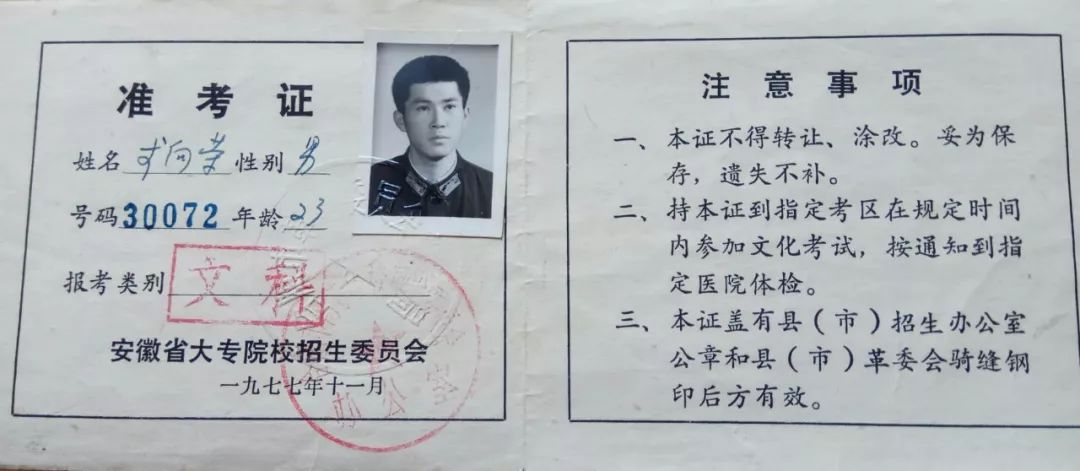 准考证
姓名 向荣 性别 男
号码 30072 年龄 23
报考类别 文科
安徽省大专院校招生委员会
一九七七年十一月
办公室
注意事项
一、本证不得转让、涂改。妥为保
存，遗失不补。
二、持本证到指定考区在规定时间
内参加文化考试，按通知到指
定医院体检。
三、本证盖有县（市）招生办公室
公章和县（市）革委会骑缝钢
印后方有效。